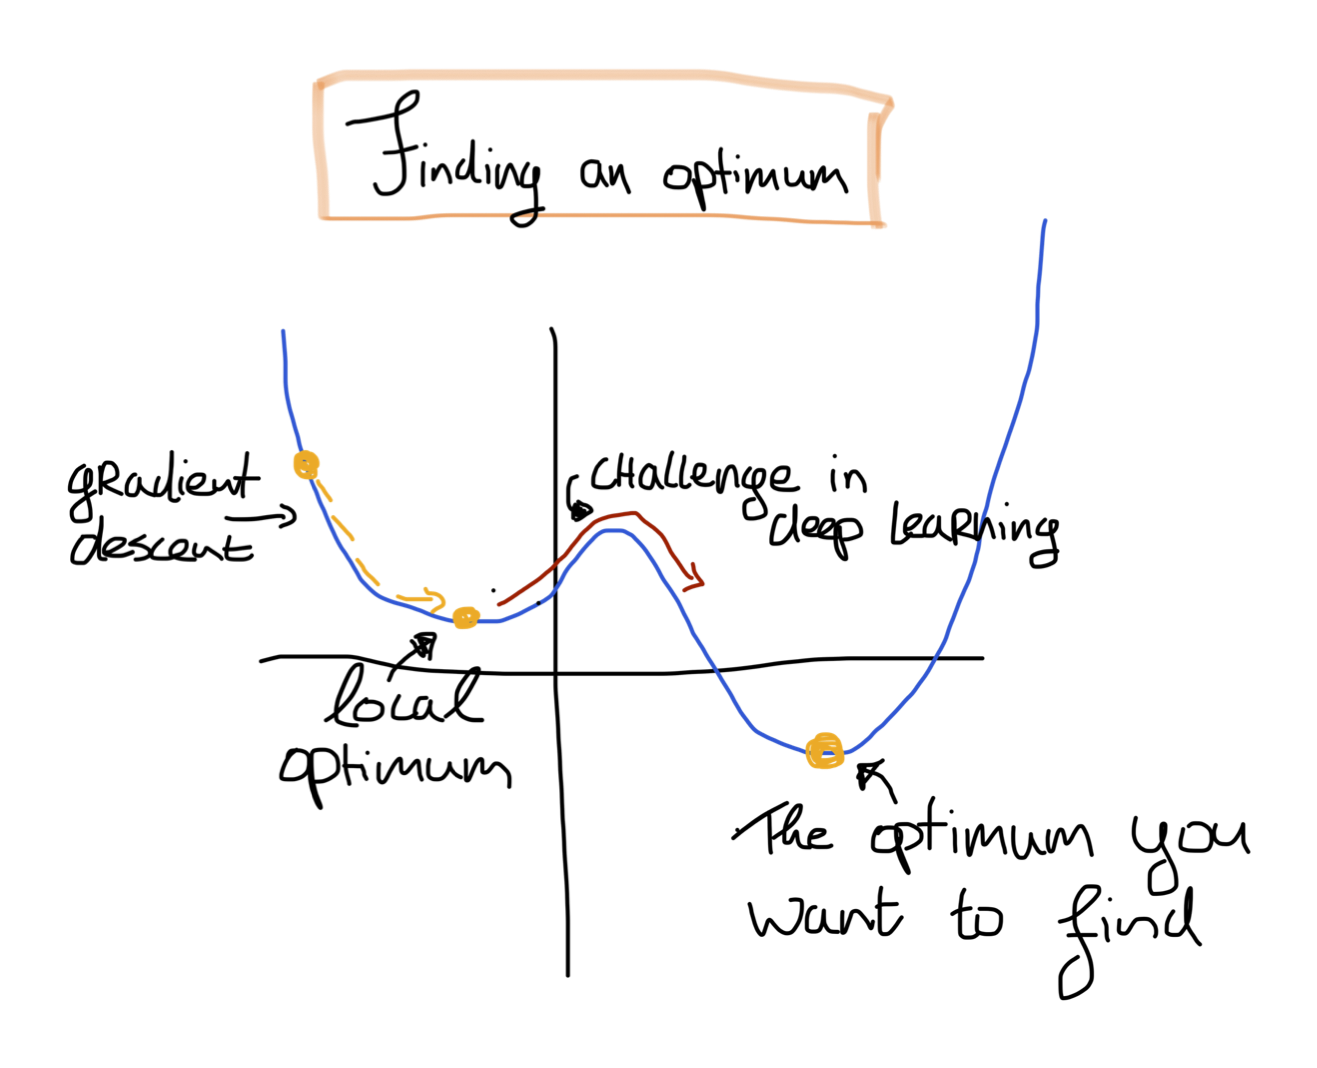 Finding an optimum
gradient
descent
Challenge in
deep learning
local
optimum
The optimum you
want to find